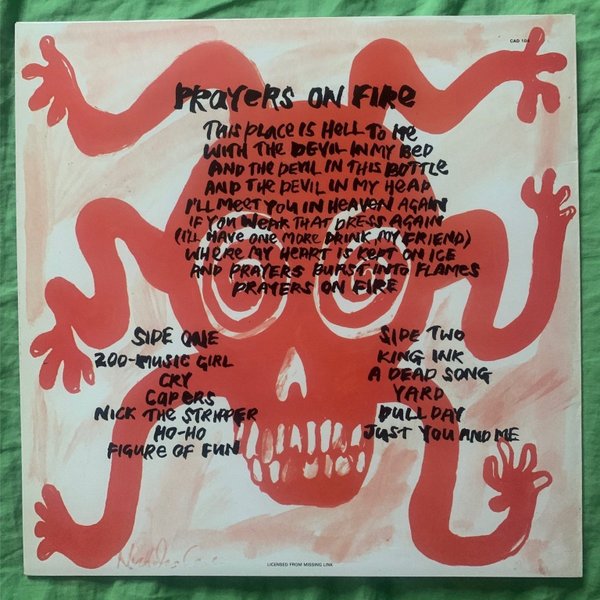 CAD 104
PRAYERS ON FIRE
THIS PLACE IS HELL TO ME
WITH THE DEVIL IN MY BED
AND THE DEVIL IN THIS BOTTLE
AND THE DEVIL IN MY HEAD
I'LL MEET YOU IN HEAVEN AGAIN
IF YOU WEAR THAT DRESS AGAIN
(I'LL HAVE ONE MORE DRINK, MY FRIEND)
WHERE MY HEART IS KEPT ON ICE
AND PRAYERS BURST INTO FLAMES
PRAYERS ON FIRE
SIDE ONE
ZOO-MUSIC GIRL
CRY
CAPERS
NICK THE STRIPPER
HO-HO
FIGURE OF FUN
SIDE TWO
KING INK
A DEAD SONG
YARD
DULL DAY
JUST YOU AND ME
LICENSED FROM MISSING LINK